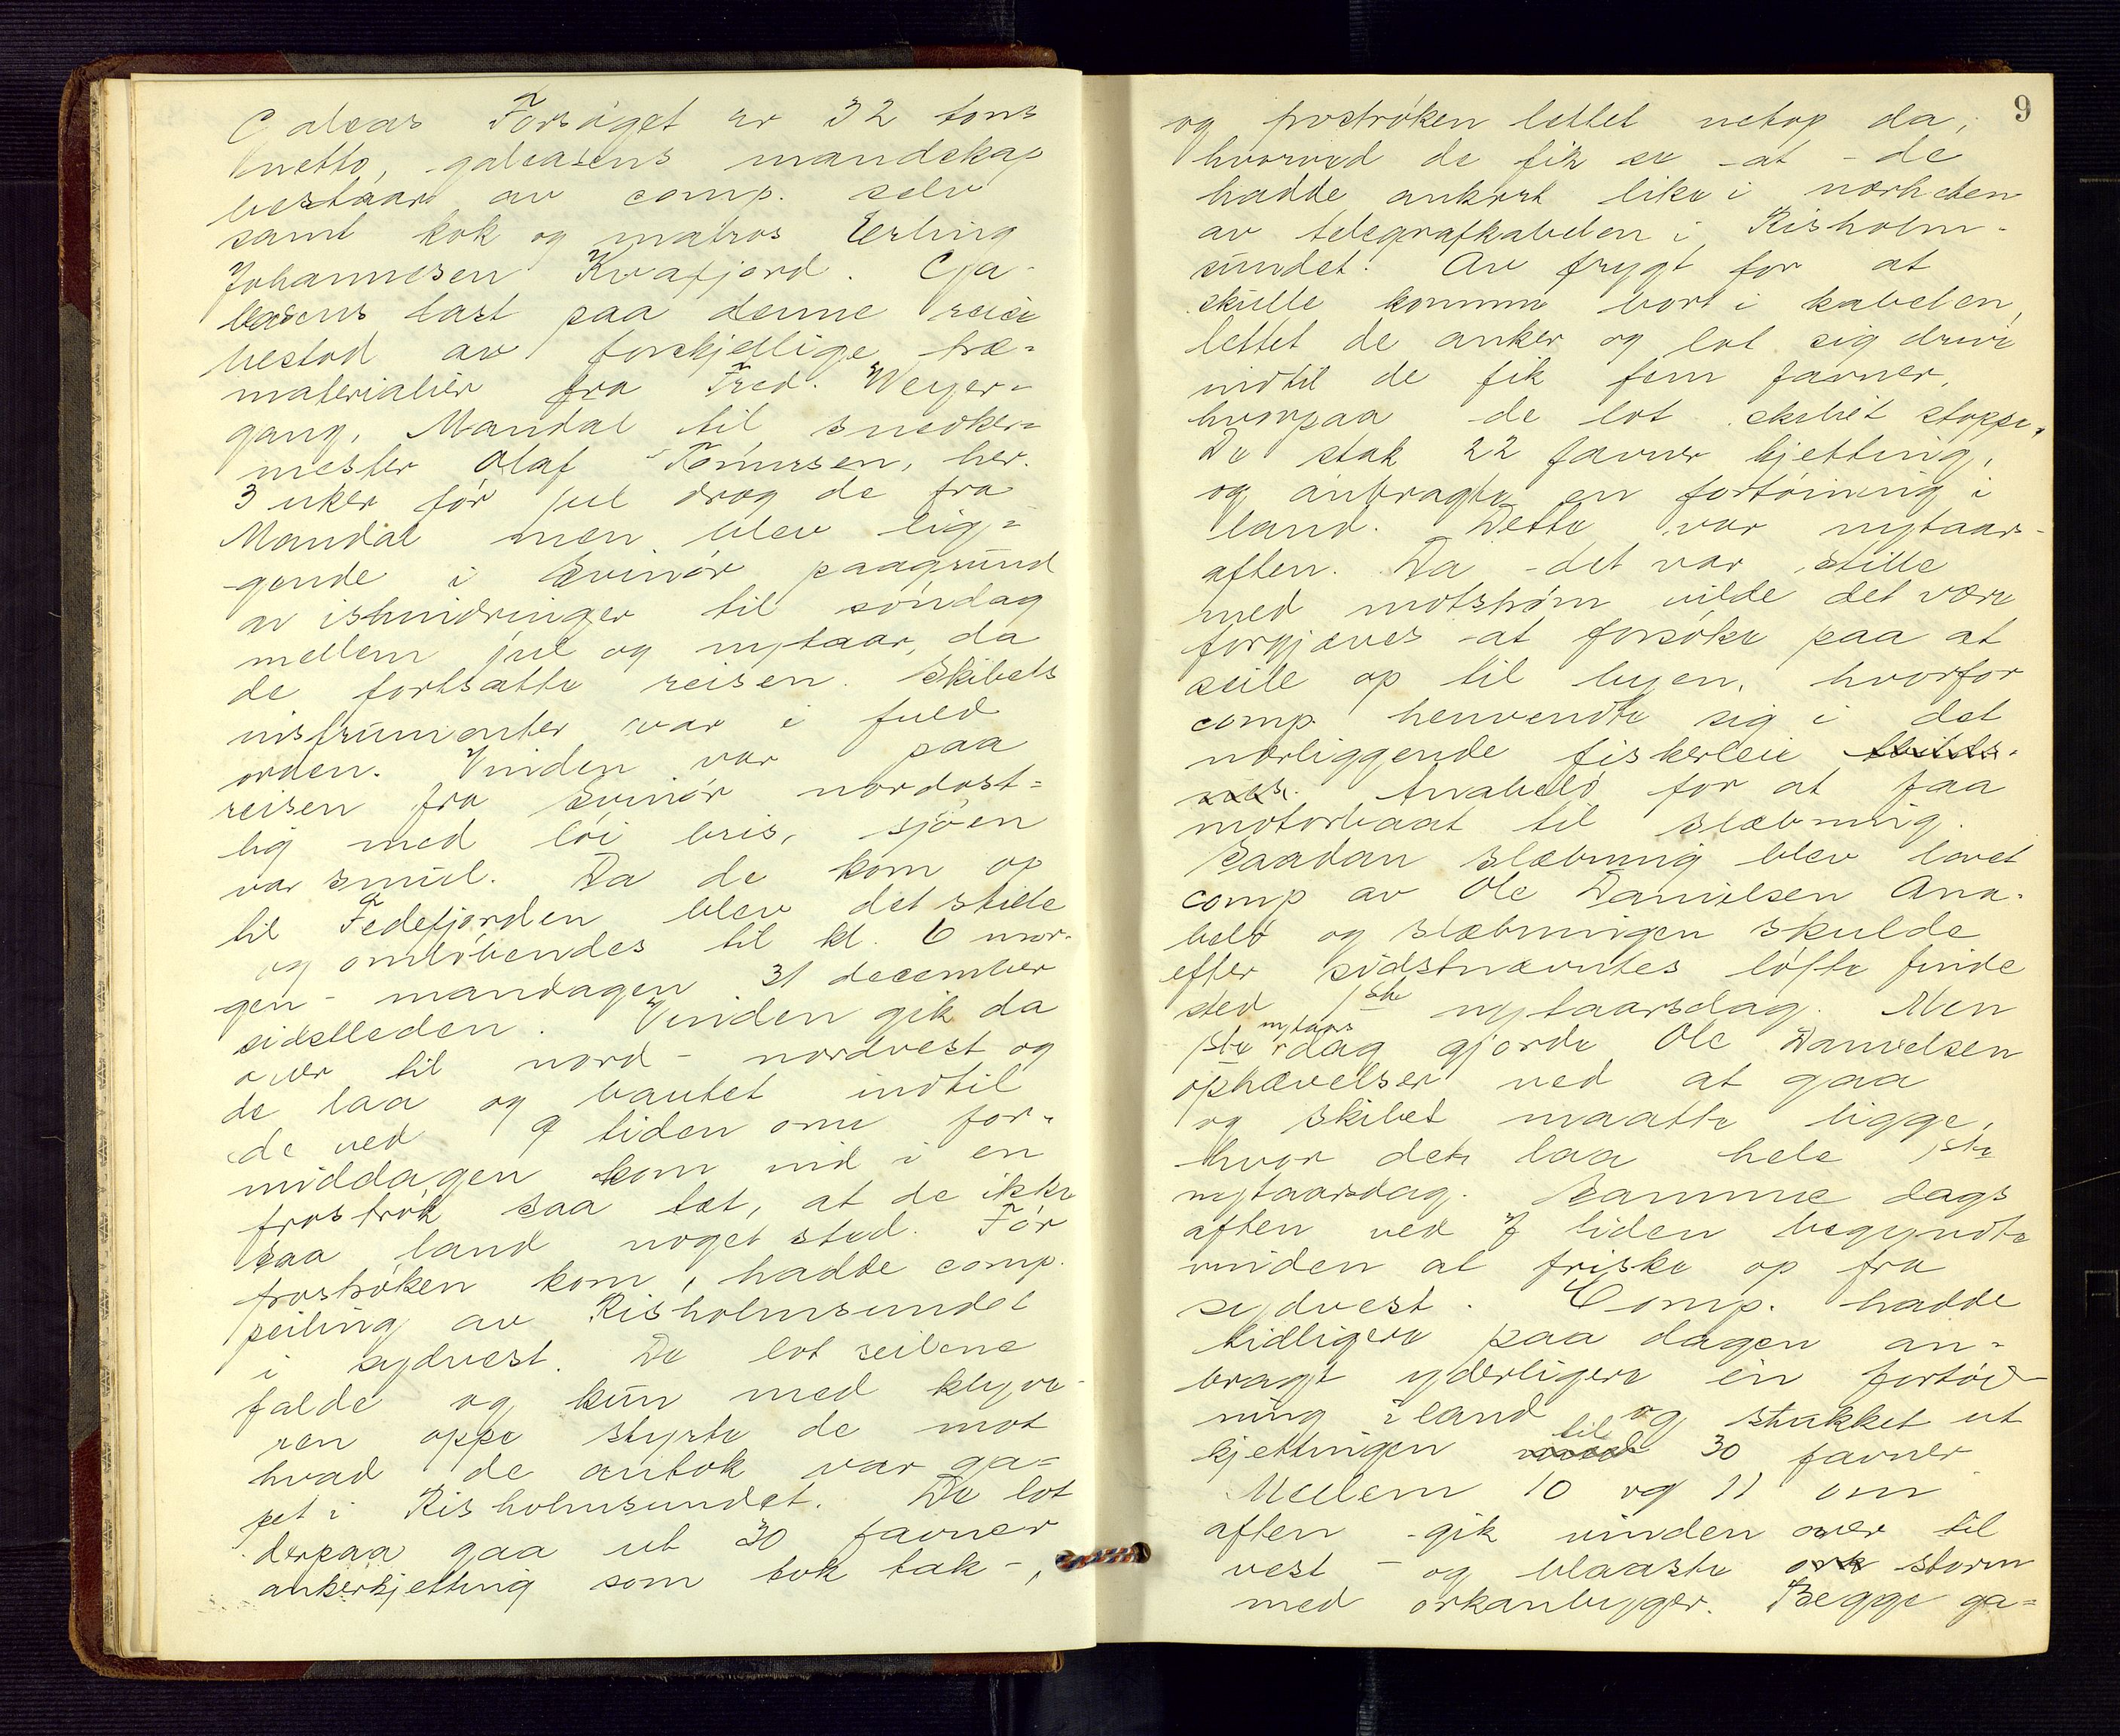 Galeas Forsøget er 32 tons
netto, galeasens mandskap
bestaar av comp. selv
samt kok og matros Erling
Johannesen Kvafjord. Ga-
leasens last paa denne reise
bestod av forskjellige træ=
materialier fra Fred. Weyer=
gang, Mandal til snedker=
mester Olaf Tønnesen, her.
3 uker før jul drog de fra
Mandal men blev lig=
gende i Svinør paagrund
av ishindringer til søndag
mellem jul og nytaar, da
de fortsatte reisen. Skibets
instrumenter var i fuld
orden. Vinden var paa
reisen fra Svinør nordost=
lig med løi bris, sjøen
var smul. Da de kom op
til Fedefjorden blev det stille
og omløbendes til kl. 6 mor-
gen - mandagen 31 december
sidstleden. Vinden gik da
over til nord - nordvest og
de laa og bautet indtil
de ved 9 tiden om for-
middagen kom ind i en
frostrøk saa tæt, at de ikke
saa land noget sted. Før
frostrøken kom, hadde comp.
peiling av Risholmsundet
i sydvest. De lot seilene
falde og kun med klyve-
ren oppe styrte de mot
hvad de antok var ga=
pet i Risholmsundet. De lot
derpaa gaa ut 30 favner
ankerkjetting som tok tak -,
9
og frostrøken lettet netop da,
hvorved de fik se at de
hadde ankret like i nærheden
av telegrafkabelen i Risholm-
sundet. Av frygt for at
skulle komme bort i kabelen,
lettet de anker og lot sig drive
indtil de fik fem favner,
hvorpaa de lot skibet stoppe.
De stak 22 favner kjetting,
og anbragte en fortøining i
land. Dette var nytaars-
aften. Da det var stille
med motstrøm vilde det være
forgjæves at forsøke paa at
seile op til byen, hvorfor
comp. henvendte sig i det
nærliggende fiskerleie
Anabeló for at faa
motorbaat til slæbning.
Saadan slæbning blev lovet
comp av Ole Danielsen Ana-
beló og slæbningen skulde
efter sidstnævntes løfte finde
sted 1ste nytaarsdag. Men
1ste nytaarsdag gjorde Ole Danielsen
ophævelser ved at gaa
og skibet maatte ligge,
hvor det laa hele 1ste
nytaarsdag. Samme dags
aften ved 7 tiden begyndte
vinden at friske op fra
sydvest. Comp. hadde
tidligere paa dagen an-
bragt yderligere én fortøi-
ning i land og stukket ut
kjettingen til 30 favner
Mellem 10 og 11 om
aften gik vinden over til
vest - og blaaste ork storm
med orkanbyger. Begge ga=